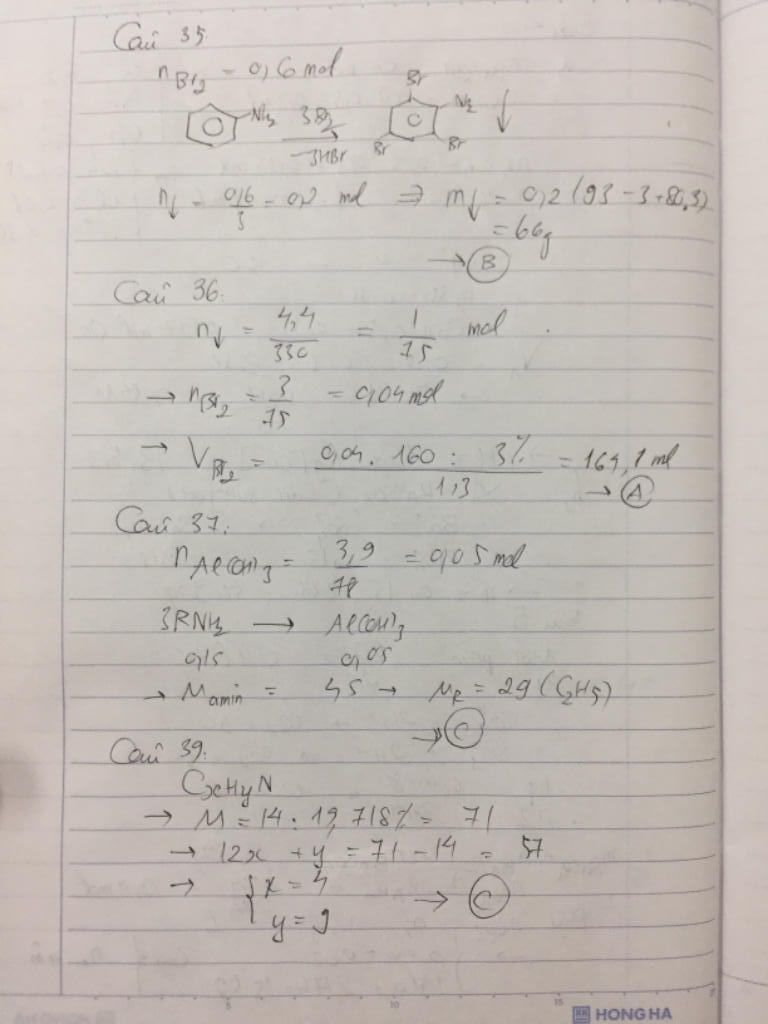 Câu 35
nBr2 = 0,6 mol
NH2 3Br2 -3HBr Br NH2 Br Br ↓
n↓ = 0,6/3 = 0,2 mol ⇒ m↓ = 0,2 (93 - 3 + 80.3)
= 66g
→ B
Câu 36:
n↓ = 4,4/330 = 1/75 mol.
→ nBr2 = 3/75 = 0,04 mol
→ VBr2 = 0,04. 160 : 3% / 1,3 = 164,1 ml
→ A
Câu 37:
nAl(OH)3 = 3,9/78 = 0,05 mol
3RNH2 → Al(OH)3
0,15 0,05
→ Mamin = 45 → MR = 29 (C2H5)
→ C
Câu 39:
CxHyN
→ M = 14 : 19,718% = 71
→ 12x + y = 71 - 14 = 57
→ { x = 4
y = 9 → C
5 10 15
HONG HA